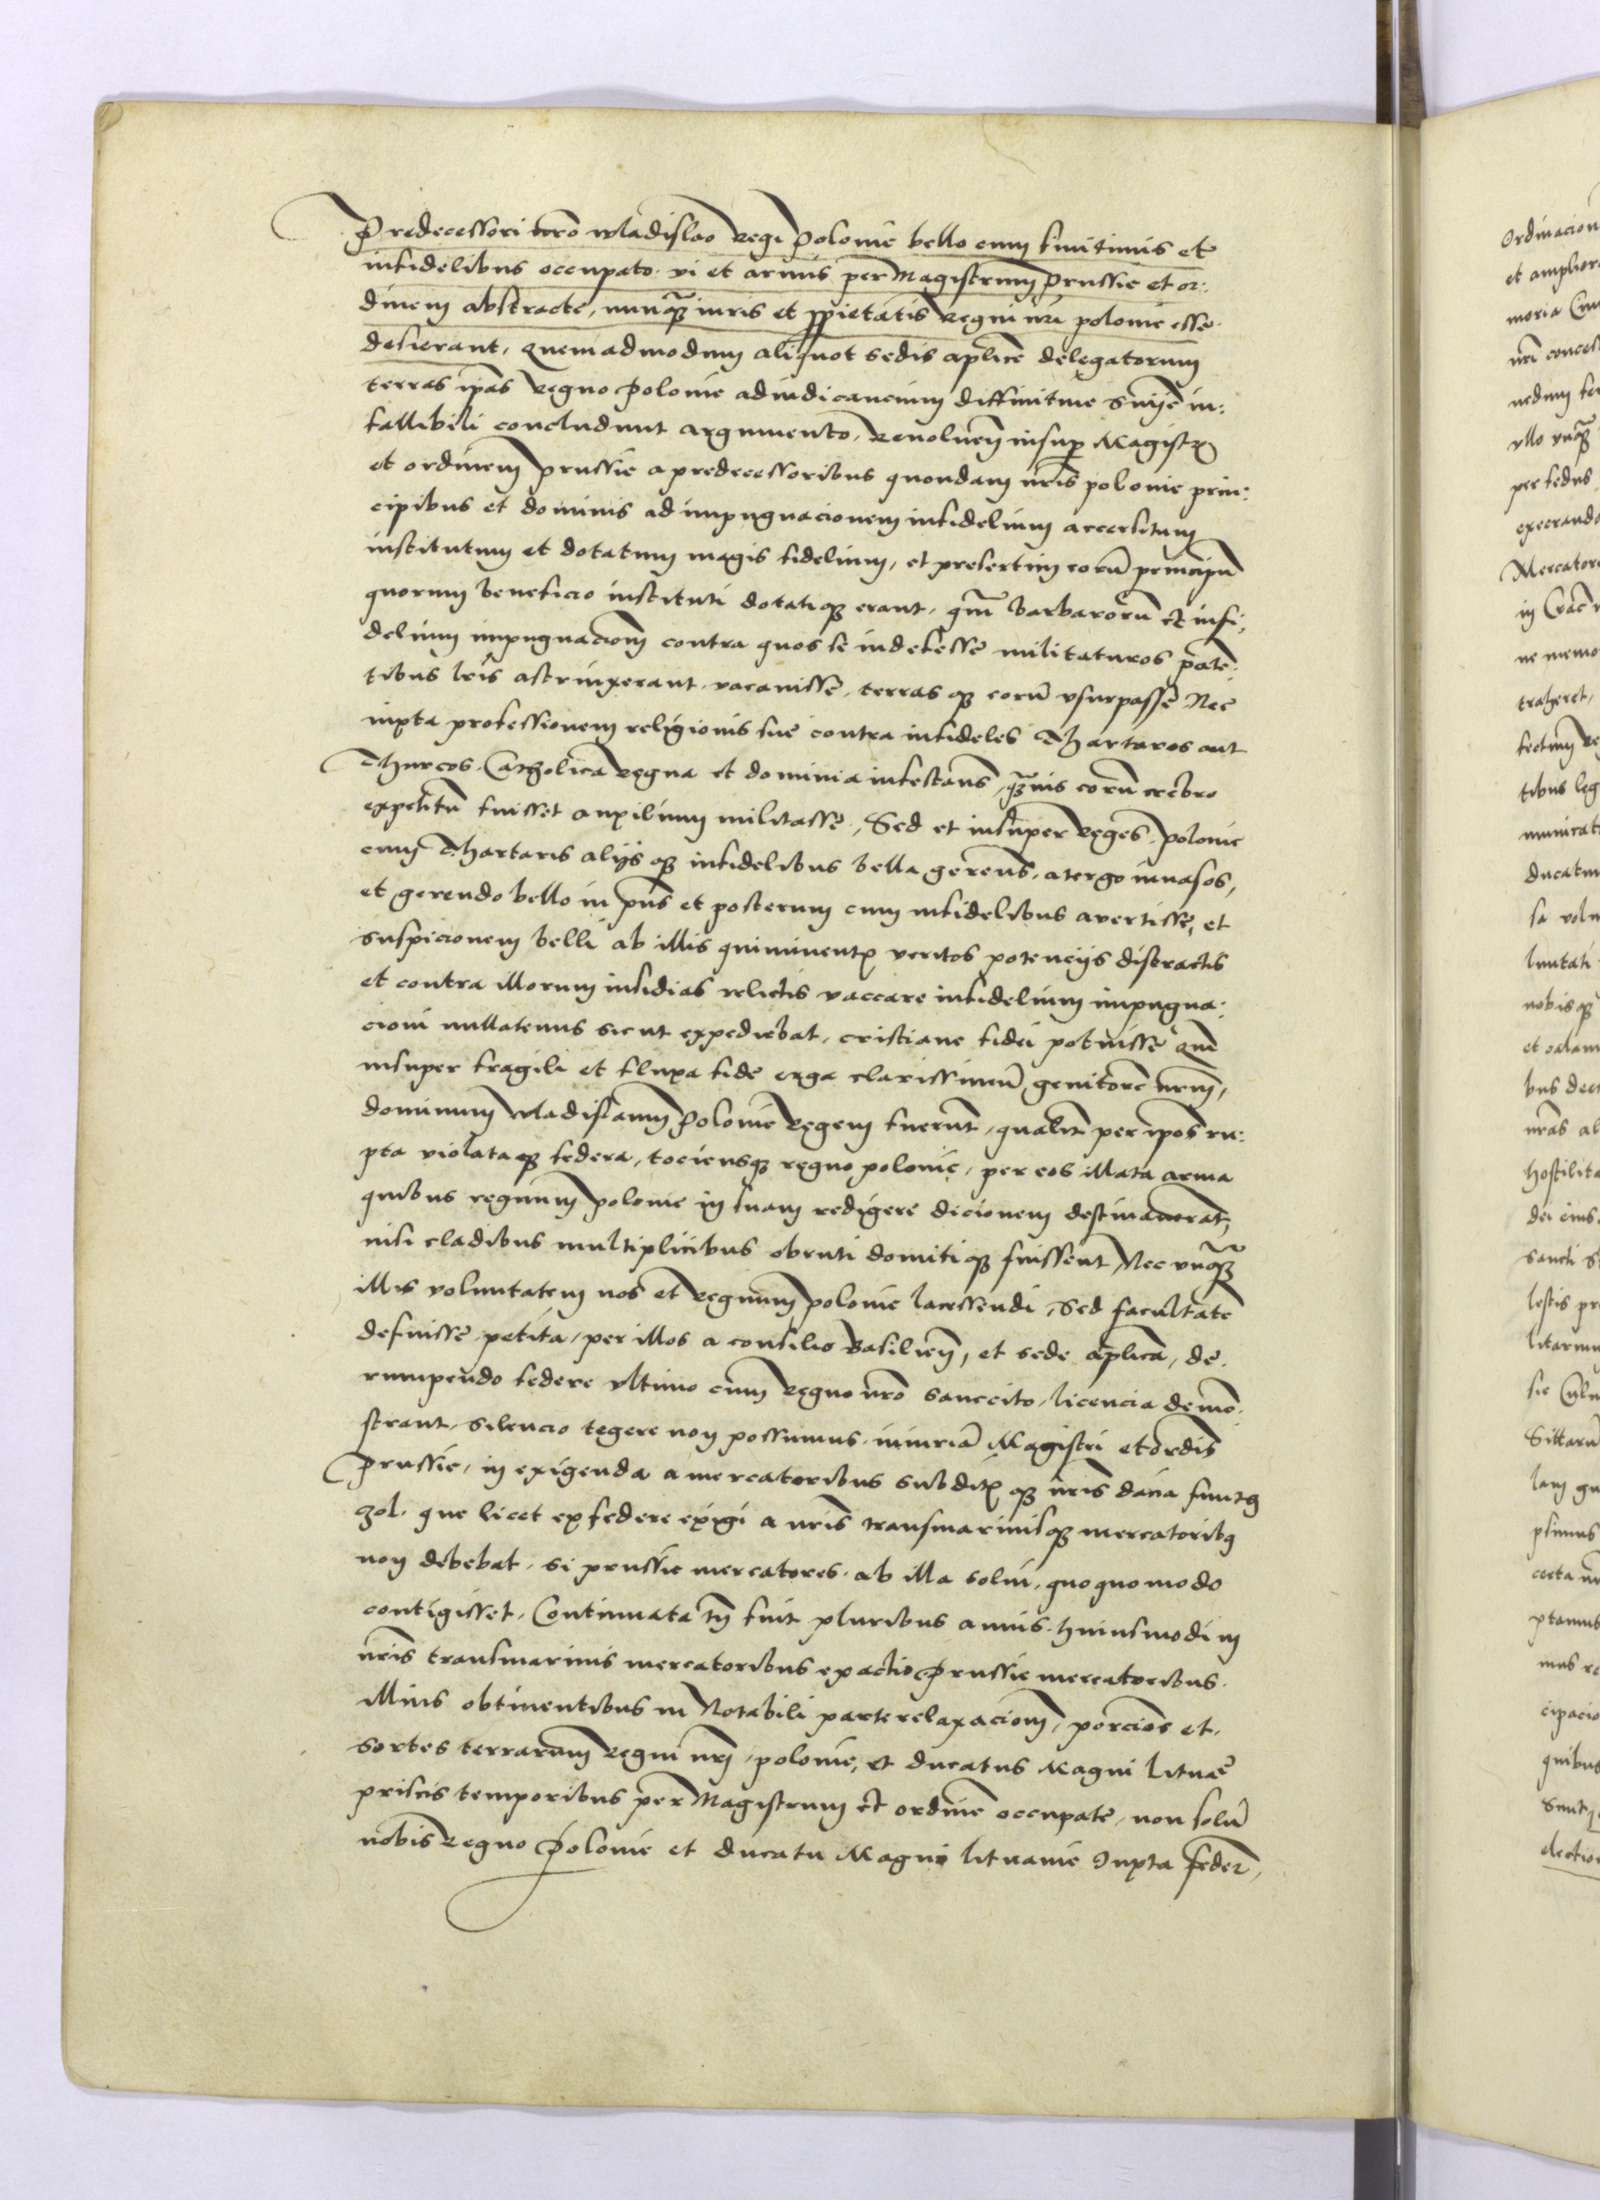 Predecessori nr̄o wladislao Regi Polonie bello cum finitimis et
infidelibus occupato. vi et armis per Magistrum Prussie et or:
dinem abstracte, nunq̄ȝ iuris et ꝓprietatis Regni nr̄i polonie esse
desierant, quemadmodum aliquot sedis aplice delegatorum
terras ip̄as Regno Polonie adiudicancium diffinitiue sn̄ie in:
fallibili concludunt argumento, Reuoluen̄ insuꝑ Magistꝝ
et ordinem prussie a predecessoribus quondam nr̄is polonie prin:
cipibus et dominis ad impugnacionem infidelium accersitum
institutum et dotatum magis fidelium, et presertim eorū principū
quorum beneficio instituti dotatiqȝ erant, qm̄ barbarorū et infi:
delium impugnacioni contra quos se indefesse militaturos paten:
tibus lr̄is astrinxerant. vacauisse, terrasqȝ eorū vsurpasse Nec
iuxta professionem religionis sue contra infideles Thartaros aut
Thurcos Catholica Regna et dominia infestan̄s, qȝuis eorū crebro
expetitū fuisset auxilium militasse, Sed et insuper Reges Polonie
cum Thartaris alijsqȝ infidelibus bella geren̄s, a tergo inuasos,
et gerendo bello in pn̄s et posterum cum infidelibus avertisse, et
suspicionem belli ab illis quiminentꝝ veritos potencijs distractis
et contra illorum insidias relictis vaccare infidelium impugna:
cioni nullatenus sicut expediebat, cristiane fidei potuisse qm̄
insuper fragili et fluxa fide erga clarissimū genitorē nr̄m,
dominum wladislaum Polonie Regem fuerūt, qualit̄ per ip̄os ru:
pta violataqȝ federa, tociensqȝ regno polonie, per eos illata arma
quibus regnum Polonie in suam redigere dicionem destinauerāt,
nisi cladibus multiplicibus obruti domitiqȝ fuissent, Nec vnq̄ȝ
illis voluntatem nos et Regnum polonie lacessendi, Sed facultatē
defuisse petita, per illos a consilio Basilien̄, et sede aplica, de
rumpendo federe vltimo cum Regno nr̄o sanccito, licencia demō:
strant. silencio tegere non possumus, iniuriā Magistri et ordīs
Prussie, in exigenda a mercatoribus subditꝝqȝ nr̄is dacia funtg
zol. que licet ex federe exigi a nr̄is transmarinisqȝ mercatoribꝰ
non debebat, si prussie mercatores. ab illa solui, quoquomodo
contigisset, Continuata tn̄ fuit pluribus annis. huiusmodi in
nr̄is transmarinis mercatoribus exactio Prussie mercatoribus.
illius obtinentibus in Notabili parte relaxacion̄, porcion̄s et
Sortes terrarum Regni nr̄i, polonie, et ducatus Magni lituāe
priscis temporibus per Magistrum et ordinē occupate, non solū
nobis Regno Polonie et ducatu Magno lituanie Iuxta feder̄,
Ordinacion
et ampliora
moria Cum
nr̄i conces
nedum
vllo vnq̄ȝ
per fedus
execrando
Mercatore
in Crac
ne memo
traheret,
tibus leg
municat
ducatu
sa volu
luntati
nobisqȝ
et calam
bus decr
nr̄as al
hostilita
dei eius
sancti
lestis pr
litarum
cipacio
quibus
electio